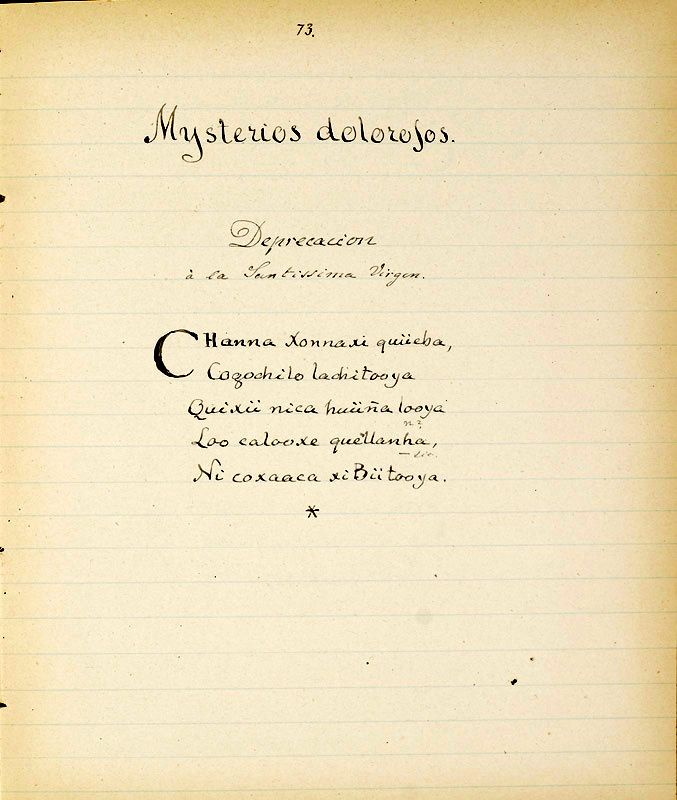 73.
Mysterios dolorosos.
Deprecacion
à la Santissima Virgen.
CHanna Xonnaxi quiieba,
Cogochilo lachitooya
Quixii nica huiiña looya
n?
Loo calooxe quellanha,
— sic.
Ni coxaaca xi Biitooya.
*